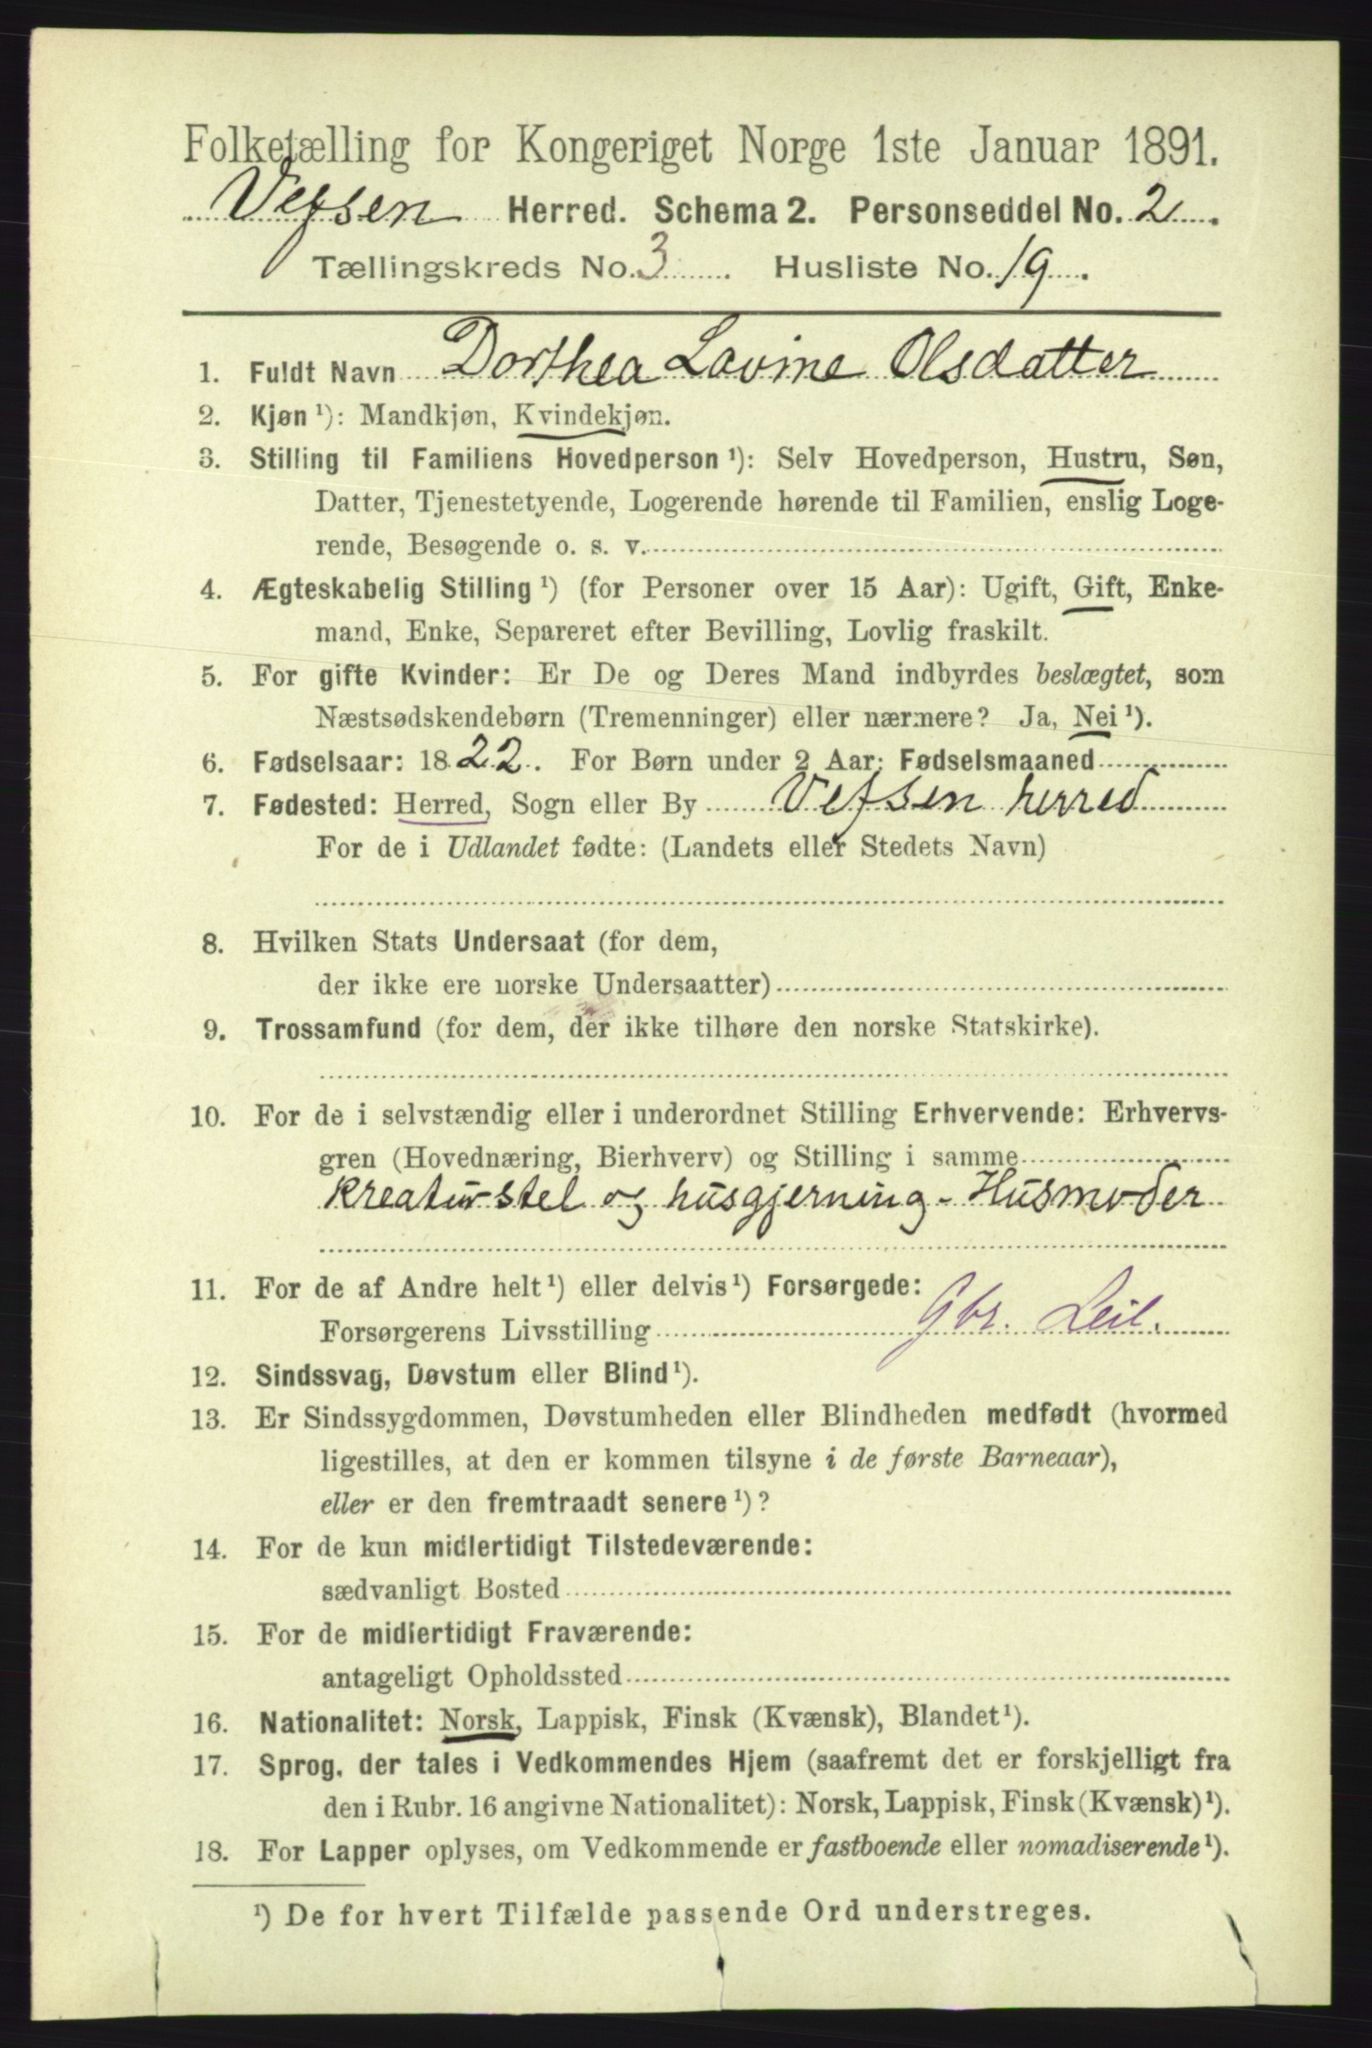 Folketælling for Kongeriget Norge 1ste Januar 1891.
Vefsen Herred. Schema 2. Personseddel No. 2.
Tællingskreds No. 3. Husliste No. 19.
1. Fuldt Navn Dorthea Lovine Olsdatter
2. Kjøn ¹): Mandkjøn, Kvindekjøn.
3. Stilling til Familiens Hovedperson ¹): Selv Hovedperson, Hustru, Søn,
Datter, Tjenestetyende, Logerende hørende til Familien, enslig Loge-
rende, Besøgende o. s. v.
4. Ægteskabelig Stilling ¹) (for Personer over 15 Aar): Ugift, Gift, Enke-
mand, Enke, Separeret efter Bevilling, Lovlig fraskilt.
5. For gifte Kvinder: Er De og Deres Mand indbyrdes beslægtet, som
Næstsødskendebørn (Tremenninger) eller nærmere? Ja, Nei ¹).
6. Fødselsaar: 1822. For Børn under 2 Aar: Fødselsmaaned
7. Fødested: Herred, Sogn eller By Vefsen herred
For de i Udlandet fødte: (Landets eller Stedets Navn)
8. Hvilken Stats Undersaat (for dem,
der ikke ere norske Undersaatter)
9. Trossamfund (for dem, der ikke tilhøre den norske Statskirke).
10. For de i selvstændig eller i underordnet Stilling Erhvervende: Erhvervs-
gren (Hovednæring, Bierhverv) og Stilling i samme
Kreaturstel og husgjerning - Husmoder
11. For de af Andre helt ¹) eller delvis ¹) Forsørgede:
Forsørgerens Livsstilling Gbr. Leil.
12. Sindssvag, Døvstum eller Blind ¹).
13. Er Sindssygdommen, Døvstumheden eller Blindheden medfødt (hvormed
ligestilles, at den er kommen tilsyne i de første Barneaar),
eller er den fremtraadt senere ¹)?
14. For de kun midlertidigt Tilstedeværende:
sædvanligt Bosted
15. For de midlertidigt Fraværende:
antageligt Opholdssted
16. Nationalitet: Norsk, Lappisk, Finsk (Kvænsk), Blandet ¹).
17. Sprog, der tales i Vedkommendes Hjem (saafremt det er forskjelligt fra
den i Rubr. 16 angivne Nationalitet): Norsk, Lappisk, Finsk (Kvænsk) ¹).
18. For Lapper oplyses, om Vedkommende er fastboende eller nomadiserende ¹).
¹) De for hvert Tilfælde passende Ord understreges.